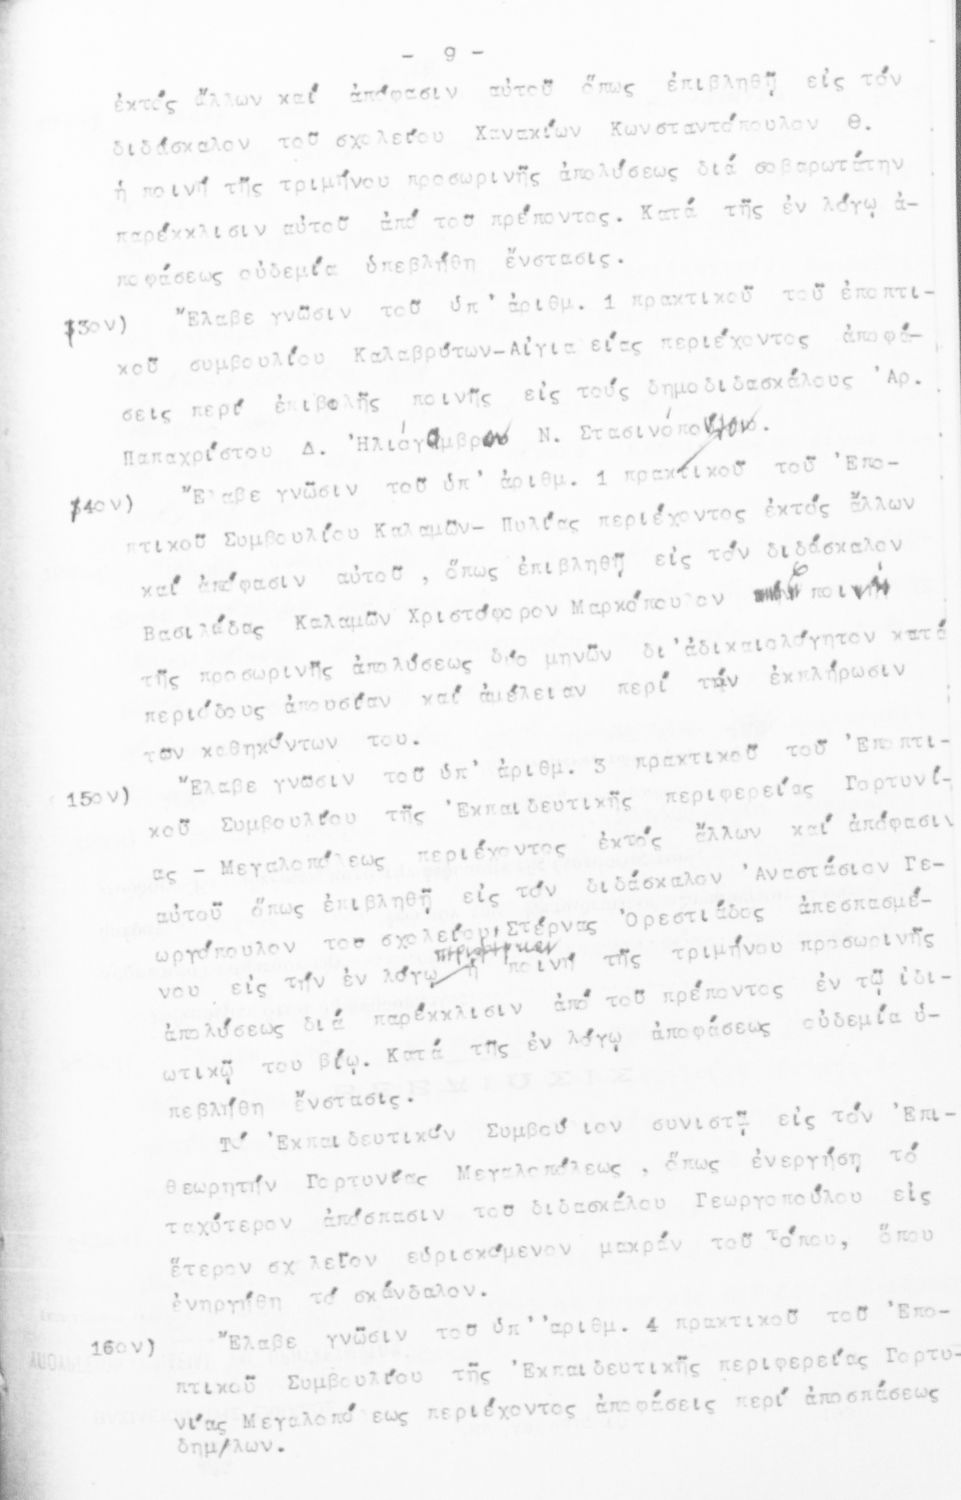 - 9 -
ἐκτός ἄλλων καί ἀπόφασιν αὐτοῦ ὅπως ἐπιβληθῇ εἰς τόν
διδάσκαλον τοῦ σχολείου Χανακίων Κωνσταντόπουλον Θ.
ἡ ποινή τῆς τριμήνου προσωρινῆς ἀπολύσεως διά σοβαρωτάτην
παρέκκλισιν αὐτοῦ ἀπό τοῦ πρέποντος. Κατά τῆς ἐν λόγῳ ἀ-
ποφάσεως οὐδεμία ὑπεβλήθη ἔνστασις.
13ον) Ἔλαβε γνῶσιν τοῦ ὑπ' ἀριθμ. 1 πρακτικοῦ τοῦ ἐποπτι-
κοῦ συμβουλίου Καλαβρύτων-Αἰγιαλείας περιέχοντος ἀποφά-
σεις περί ἐπιβολῆς ποινῆς εἰς τούς δημοδιδασκάλους 'Αρ.
Παπαχρίστου Δ. Ν.
14ον) Ἔλαβε γνῶσιν τοῦ ὑπ' ἀριθμ. 1 πρακτικοῦ τοῦ 'Επο-
πτικοῦ Συμβουλίου Καλαμῶν- Πυλίας περιέχοντος ἐκτός ἄλλων
καί ἀπόφασιν αὐτοῦ , ὅπως ἐπιβληθῇ εἰς τόν διδάσκαλον
Βασιλάδας Καλαμῶν Χριστόφορον Μαρκόπουλον ποινή
τῆς προσωρινῆς ἀπολύσεως δύο μηνῶν δι'ἀδικαιολόγητον κατά
περιόδους ἀπουσίαν καί ἀμέλειαν περί τήν ἐκπλήρωσιν
τῶν καθηκόντων του.
15ον) Ἔλαβε γνῶσιν τοῦ ὑπ' ἀριθμ. 3 πρακτικοῦ τοῦ 'Εποπτι-
κοῦ Συμβουλίου τῆς 'Εκπαιδευτικῆς περιφερείας Γορτυνί-
ας - Μεγαλοπόλεως περιέχοντος ἐκτός ἄλλων καί ἀπόφασιν
αὐτοῦ ὅπως ἐπιβληθῇ εἰς τόν διδάσκαλον 'Αναστάσιον Γε-
ωργόπουλον τοῦ σχολείου Στέρνας 'Ορεστιάδος ἀπεσπασμέ-
νου εἰς τήν ἐν λόγῳ περιφέρειαν ἡ ποινή τῆς τριμήνου προσωρινῆς
ἀπολύσεως διά παρέκκλισιν ἀπό τοῦ πρέποντος ἐν τῷ ἰδι-
ωτικῷ του βίῳ. Κατά τῆς ἐν λόγῳ ἀποφάσεως οὐδεμία ὑ-
πεβλήθη ἔνστασις.
Τό 'Εκπαιδευτικόν Συμβούλιον συνιστᾷ εἰς τόν 'Επι-
θεωρητήν Γορτυνίας Μεγαλοπόλεως , ὅπως ἐνεργήσῃ τό
ταχύτερον ἀπόσπασιν τοῦ διδασκάλου Γεωργοπούλου εἰς
ἕτερον σχολεῖον εὑρισκόμενον μακράν τοῦ τόπου, ὅπου
ἐνηργήθη τό σκάνδαλον.
16ον) Ἔλαβε γνῶσιν τοῦ ὑπ''αριθμ. 4 πρακτικοῦ τοῦ 'Επο-
πτικοῦ Συμβουλίου τῆς 'Εκπαιδευτικῆς περιφερείας Γορτυ-
νίας Μεγαλοπόλεως περιέχοντος ἀποφάσεις περί ἀποσπάσεως
δημ/λων.